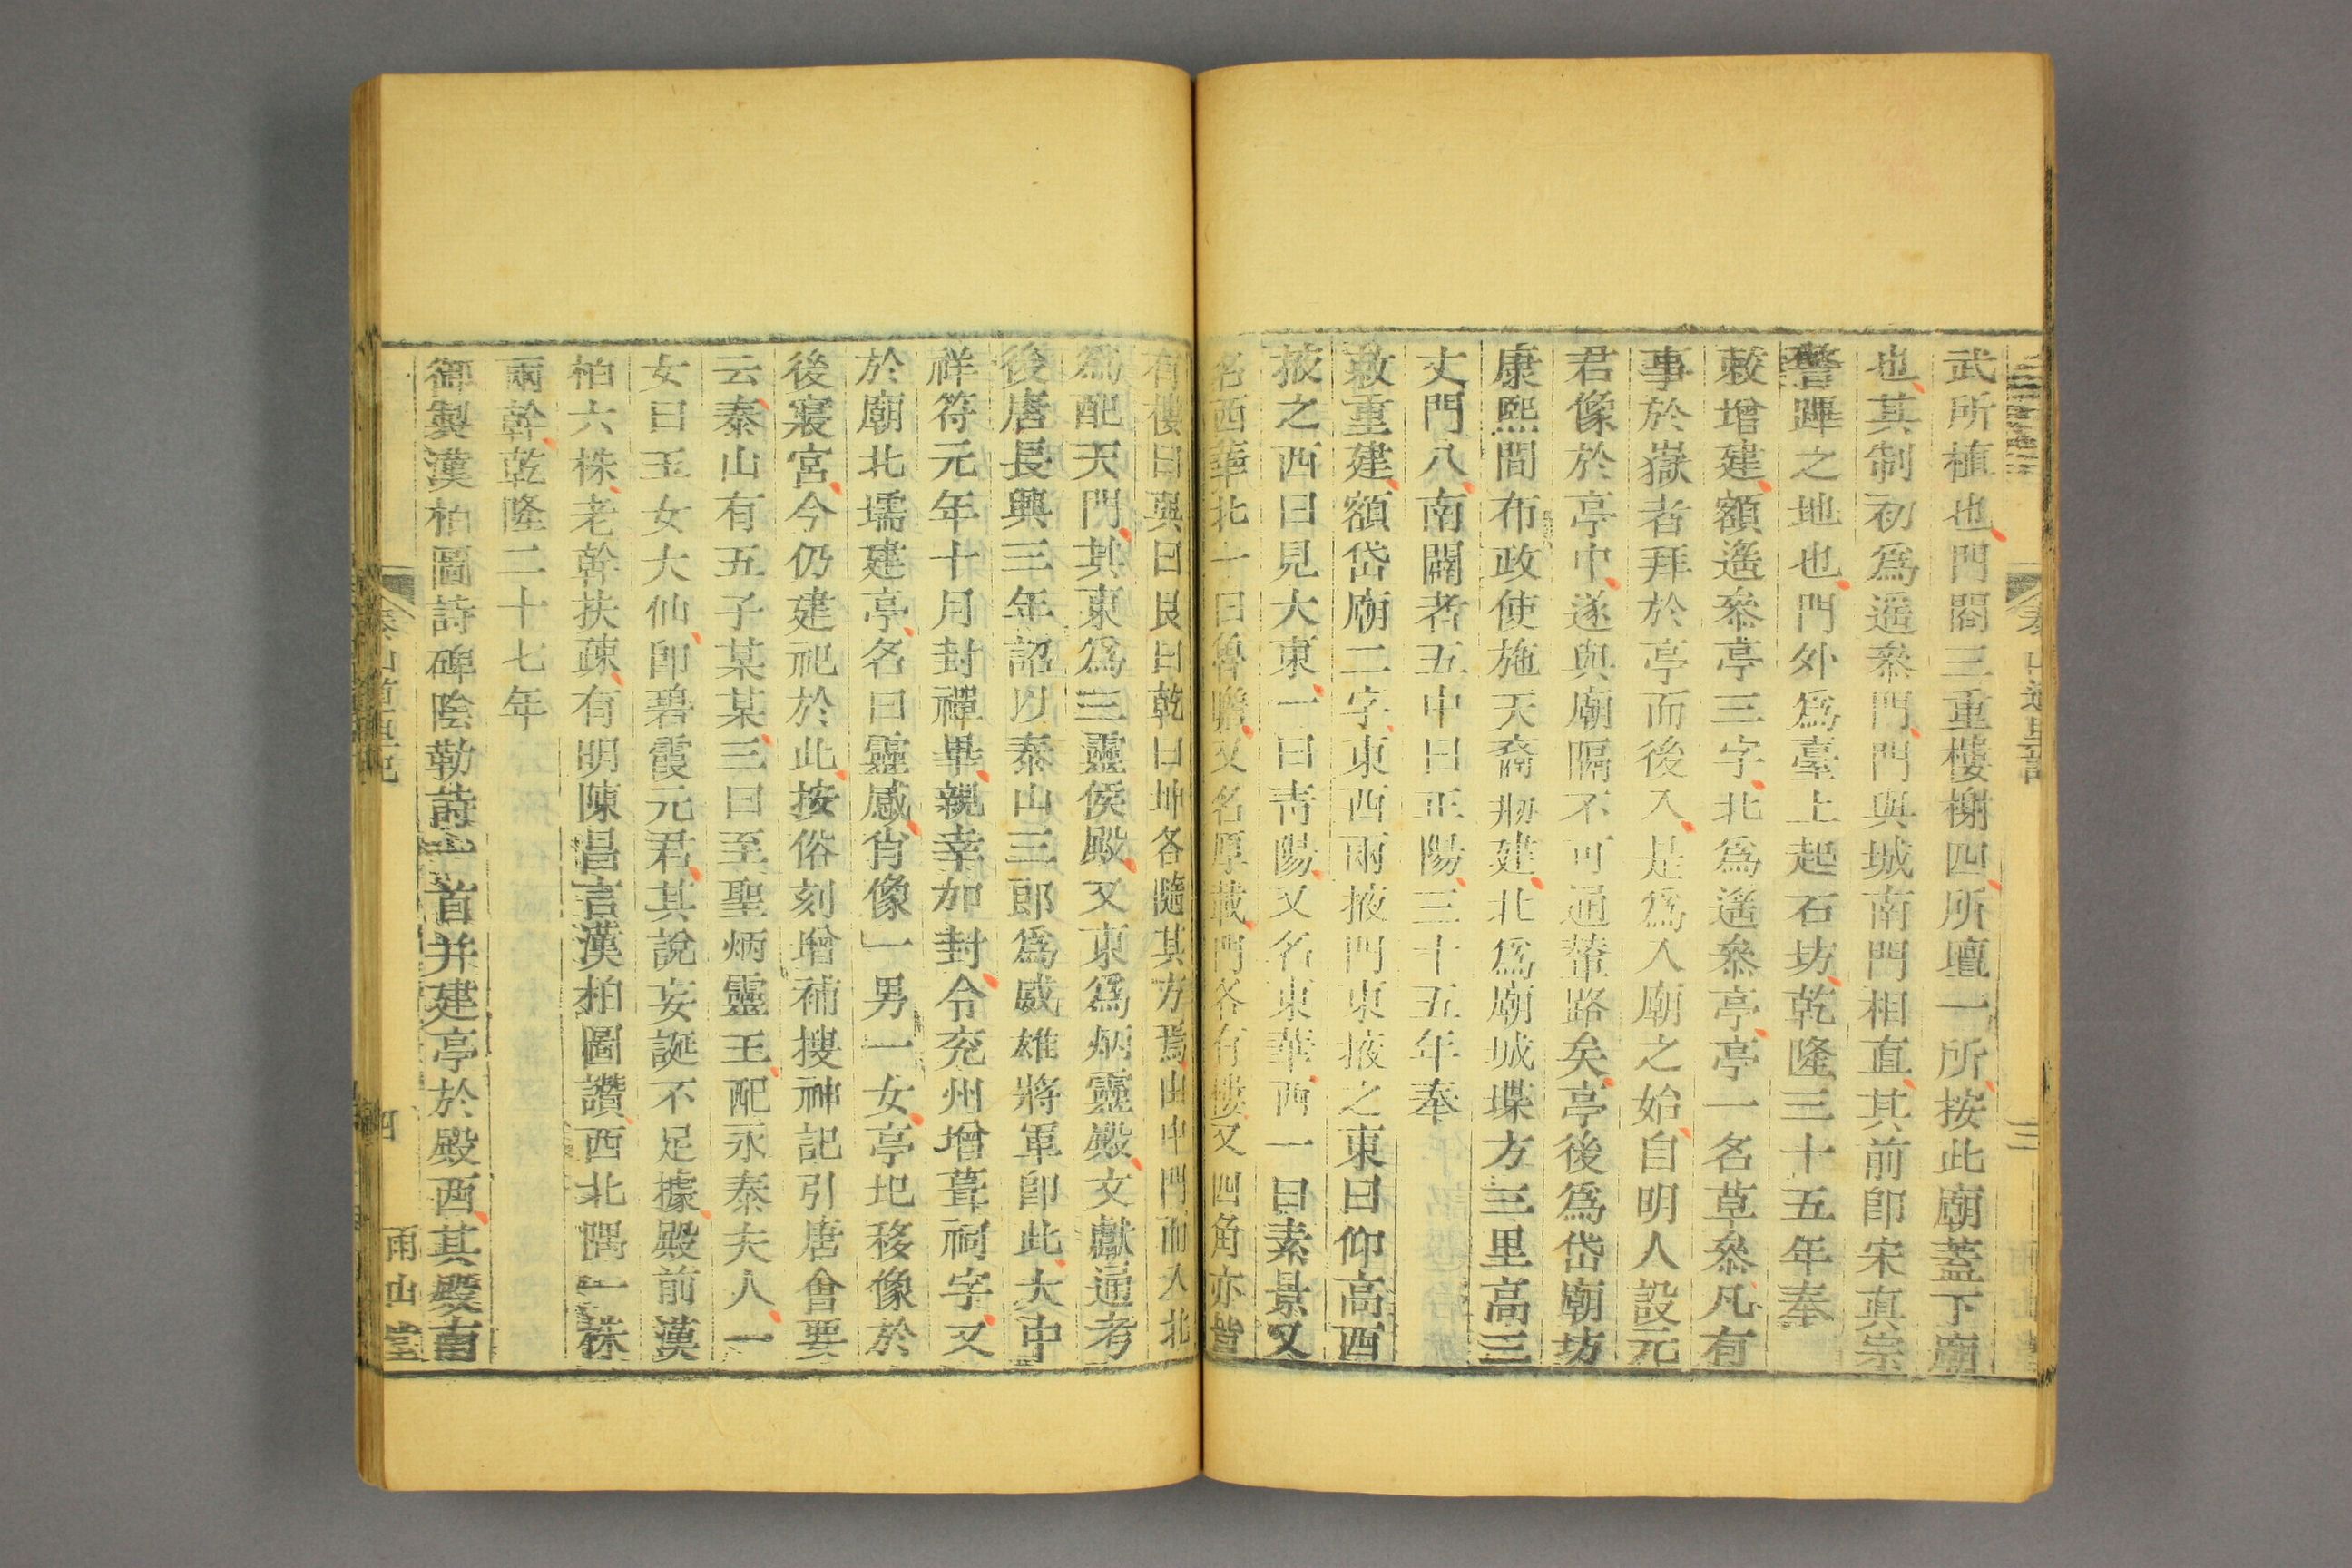 武所植也門閣三重樓榭四所壇一所按此廟蓋下廟
也其制初爲遥叅門門與城南門相直其前卽宋真宗
警蹕之地也門外爲臺上起石坊乾隆三十五年奉
敕增建額遙叅亭三字北爲遙叅亭亭一名草叅凡有
事於嶽者拜於亭而後入是爲入廟之始自明人設元
君像於亭中遂與廟隔不可通輦路矣亭後爲岱廟坊
康熙間布政使施天裔剏建北爲廟城堞方三里高三
丈門八南闢者五中曰正陽三十五年奉
敕重建額岱廟二字東西兩掖門東掖之東曰仰高西
掖之西曰見大東一曰青陽又名東華西一曰素景又
名西華北一曰魯瞻又名厚載門各有樓又四角亦皆
有樓曰巽曰艮曰乾曰坤各隨其方焉由中門而入北
爲配天門其東爲三靈侯殿又東爲炳靈殿文獻通考
後唐長興三年詔以泰山三郎爲威雄將軍卽此大中
祥符元年十月封禪畢親幸加封令兖州增葺祠宇又
於廟北壖建亭名曰靈感肖像一男一女亭圯移像於
後寢宮今仍建祀於此按俗刻增補搜神記引唐會要
云泰山有五子某某三曰至聖炳靈王配永泰夫人一
女曰玉女大仙卽碧霞元君其說妄誕不足據殿前漢
柏六株老幹扶疎有明陳昌言漢柏圖讚西北隅一株
兩幹乾隆二十七年
御製漢柏圖詩碑陰勒詩一首并建亭於殿西其殿南
泰山道里記
四
雨山堂